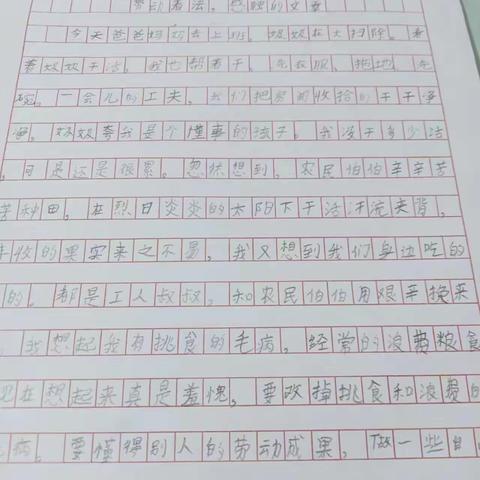 劳动看法,感触的文章
今天爸爸妈妈去上班,奶奶在大扫除。看
着奶奶干活,我也帮着干。洗衣服,拖地,洗
碗。一会儿的工夫,我们把家里收拾的干干净
净。奶奶夸我是个懂事的孩子。我没干多少活
,可是还是很累。忽然想到,农民伯伯辛辛苦
苦种田。在烈日炎炎的太阳下干活汗流夹背,
收的果实来之不易。我又想到我们身边吃的
的。都是工人叔叔。和农民伯伯用艰辛换来
我想起我有挑食的毛病,经常的浪费粮食
现在想起来真是羞愧,要改掉挑食和浪费的
病。要懂得别人的劳动成果,做一些自